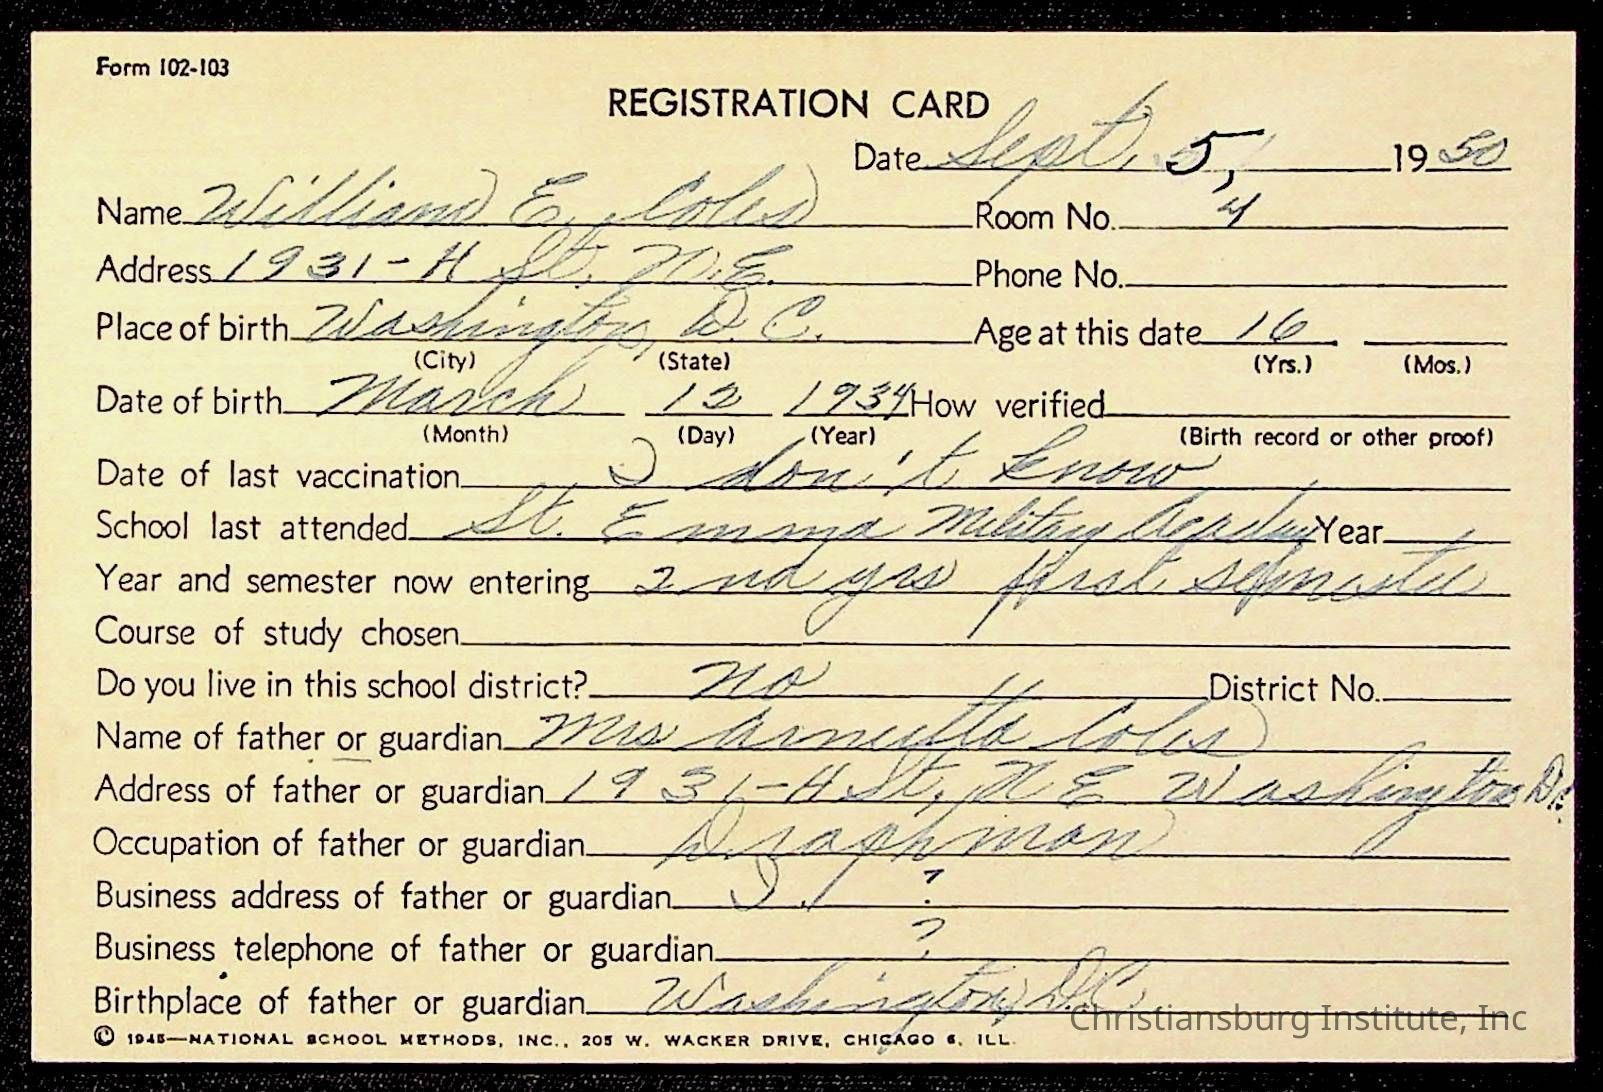 Form 102-103
REGISTRATION CARD
Date Sept. 5, 19 50
Name William E. Coles Room No. 4
Address 1931-H St. N.E. Phone No.
Place of birth Washington, D.C. Age at this date 16
(City) (State) (Yrs.) (Mos.)
Date of birth March 12 1934 How verified
(Month) (Day) (Year) (Birth record or other proof)
Date of last vaccination I don't know
School last attended St. Emma Military Academy Year
Year and semester now entering 2nd yrs first semester
Course of study chosen
Do you live in this school district? no District No.
Name of father or guardian Mrs Coles
Address of father or guardian 1931-H St, N E Washington D.C.
Occupation of father or guardian
Business address of father or guardian ?
Business telephone of father or guardian ?
Birthplace of father or guardian Washington, D.C.
© 1945—NATIONAL SCHOOL METHODS, INC., 205 W. WACKER DRIVE, CHICAGO 6, ILL.
Christiansburg Institute, Inc